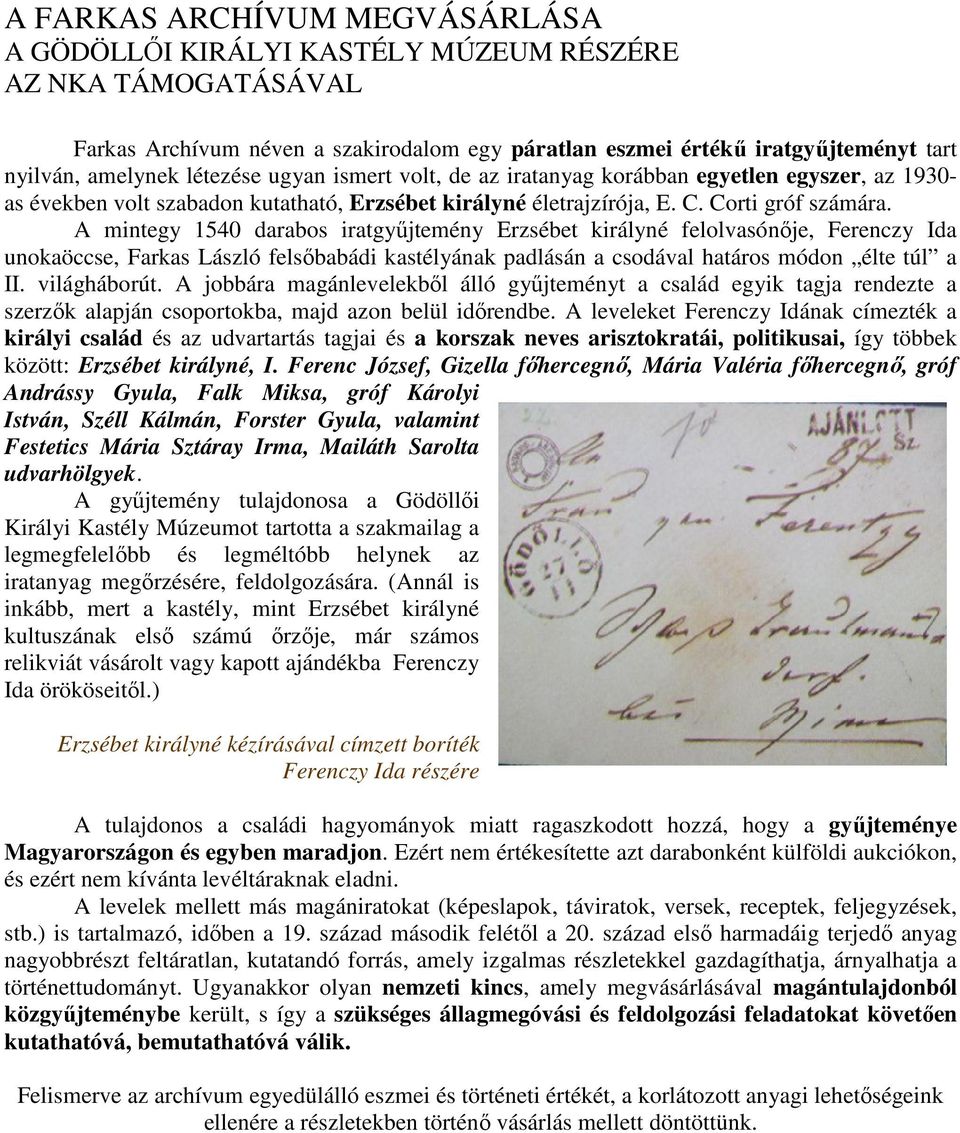 A FARKAS ARCHÍVUM MEGVÁSÁRLÁSA
A GÖDÖLLŐI KIRÁLYI KASTÉLY MÚZEUM RÉSZÉRE
AZ NKA TÁMOGATÁSÁVAL
Farkas Archívum néven a szakirodalom egy páratlan eszmei értékű iratgyűjteményt tart
nyilván, amelynek létezése ugyan ismert volt, de az iratanyag korábban egyetlen egyszer, az 1930-
as években volt szabadon kutatható, Erzsébet királyné életrajzírója, E. C. Corti gróf számára.
A mintegy 1540 darabos iratgyűjtemény Erzsébet királyné felolvasónője, Ferenczy Ida
unokaöccse, Farkas László felsőbabádi kastélyának padlásán a csodával határos módon „élte túl a
II. világháborút. A jobbára magánlevelekből álló gyűjteményt a család egyik tagja rendezte a
szerzők alapján csoportokba, majd azon belül időrendbe. A leveleket Ferenczy Idának címezték a
királyi család és az udvartartás tagjai és a korszak neves arisztokratái, politikusai, így többek
között: Erzsébet királyné, I. Ferenc József, Gizella főhercegnő, Mária Valéria főhercegnő, gróf
Andrássy Gyula, Falk Miksa, gróf Károlyi
István, Széll Kálmán, Forster Gyula, valamint
Festetics Mária Sztáray Irma, Mailáth Sarolta
udvarhölgyek.
A gyűjtemény tulajdonosa a Gödöllői
Királyi Kastély Múzeumot tartotta a szakmailag a
legmegfelelőbb és legméltóbb helynek az
iratanyag megőrzésére, feldolgozására. (Annál is
inkább, mert a kastély, mint Erzsébet királyné
kultuszának első számú őrzője, már számos
relikviát vásárolt vagy kapott ajándékba Ferenczy
Ida örököseitől.)
AJÁNLOTT
87 Sz.
Frau
Ferentzy
GÖDÖLLŐ
27
11
dorf.
bei
Wien
Erzsébet királyné kézírásával címzett boríték
Ferenczy Ida részére
A tulajdonos a családi hagyományok miatt ragaszkodott hozzá, hogy a gyűjteménye
Magyarországon és egyben maradjon. Ezért nem értékesítette azt darabonként külföldi aukciókon,
és ezért nem kívánta levéltáraknak eladni.
A levelek mellett más magániratokat (képeslapok, táviratok, versek, receptek, feljegyzések,
stb.) is tartalmazó, időben a 19. század második felétől a 20. század első harmadáig terjedő anyag
nagyobbrészt feltáratlan, kutatandó forrás, amely izgalmas részletekkel gazdagíthatja, árnyalhatja a
történettudományt. Ugyanakkor olyan nemzeti kincs, amely megvásárlásával magántulajdonból
közgyűjteménybe került, s így a szükséges állagmegóvási és feldolgozási feladatokat követően
kutathatóvá, bemutathatóvá válik.
Felismerve az archívum egyedülálló eszmei és történeti értékét, a korlátozott anyagi lehetőségeink
ellenére a részletekben történő vásárlás mellett döntöttünk.